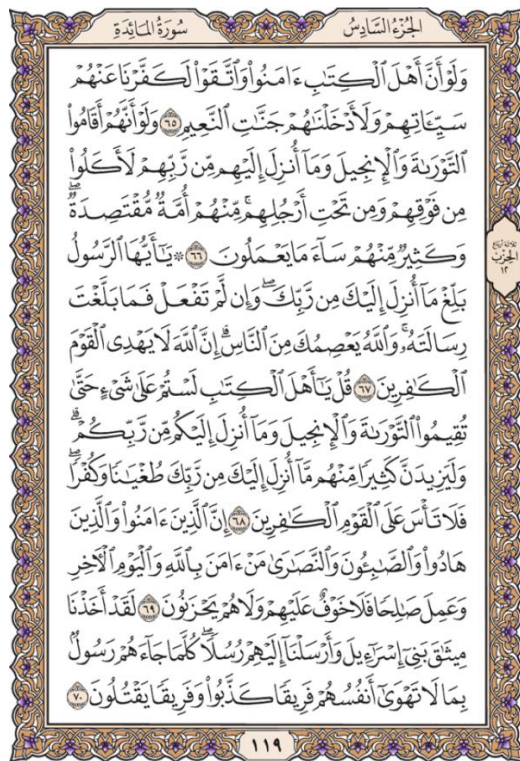 الجُزءُ السَّادِسُ سُورَةُ المَائِدَةِ
وَلَوۡ أَنَّ أَهۡلَ ٱلۡكِتَٰبِ ءَامَنُواْ وَٱتَّقَوۡاْ لَكَفَّرۡنَا عَنۡهُمۡ
سَيِّـَٔاتِهِمۡ وَلَأَدۡخَلۡنَٰهُمۡ جَنَّٰتِ ٱلنَّعِيمِ ٦٥ وَلَوۡ أَنَّهُمۡ أَقَامُواْ
ٱلتَّوۡرَىٰةَ وَٱلۡإِنجِيلَ وَمَآ أُنزِلَ إِلَيۡهِم مِّن رَّبِّهِمۡ لَأَكَلُواْ
مِن فَوۡقِهِمۡ وَمِن تَحۡتِ أَرۡجُلِهِمۚ مِّنۡهُمۡ أُمَّةٞ مُّقۡتَصِدَةٞۖ
وَكَثِيرٞ مِّنۡهُمۡ سَآءَ مَا يَعۡمَلُونَ ٦٦ ۞ يَٰٓأَيُّهَا ٱلرَّسُولُ
بَلِّغۡ مَآ أُنزِلَ إِلَيۡكَ مِن رَّبِّكَۖ وَإِن لَّمۡ تَفۡعَلۡ فَمَا بَلَّغۡتَ
رِسَالَتَهُۥۚ وَٱللَّهُ يَعۡصِمُكَ مِنَ ٱلنَّاسِۗ إِنَّ ٱللَّهَ لَا يَهۡدِي ٱلۡقَوۡمَ
ٱلۡكَٰفِرِينَ ٦٧ قُلۡ يَٰٓأَهۡلَ ٱلۡكِتَٰبِ لَسۡتُمۡ عَلَىٰ شَيۡءٍ حَتَّىٰ
تُقِيمُواْ ٱلتَّوۡرَىٰةَ وَٱلۡإِنجِيلَ وَمَآ أُنزِلَ إِلَيۡكُم مِّن رَّبِّكُمۡۗ
وَلَيَزِيدَنَّ كَثِيرٗا مِّنۡهُم مَّآ أُنزِلَ إِلَيۡكَ مِن رَّبِّكَ طُغۡيَٰنٗا وَكُفۡرٗاۖ
فَلَا تَأۡسَ عَلَى ٱلۡقَوۡمِ ٱلۡكَٰفِرِينَ ٦٨ إِنَّ ٱلَّذِينَ ءَامَنُواْ وَٱلَّذِينَ
هَادُواْ وَٱلصَّٰبِـُٔونَ وَٱلنَّصَٰرَىٰ مَنۡ ءَامَنَ بِٱللَّهِ وَٱلۡيَوۡمِ ٱلۡأٓخِرِ
وَعَمِلَ صَٰلِحٗا فَلَا خَوۡفٌ عَلَيۡهِمۡ وَلَا هُمۡ يَحۡزَنُونَ ٦٩ لَقَدۡ أَخَذۡنَا
مِيثَٰقَ بَنِيٓ إِسۡرَٰٓءِيلَ وَأَرۡسَلۡنَآ إِلَيۡهِمۡ رُسُلٗاۖ كُلَّمَا جَآءَهُمۡ رَسُولُۢ
بِمَا لَا تَهۡوَىٰٓ أَنفُسُهُمۡ فَرِيقٗا كَذَّبُواْ وَفَرِيقٗا يَقۡتُلُونَ ٧٠
ثلاثة أرباع
الحزب
١٢
١١٩